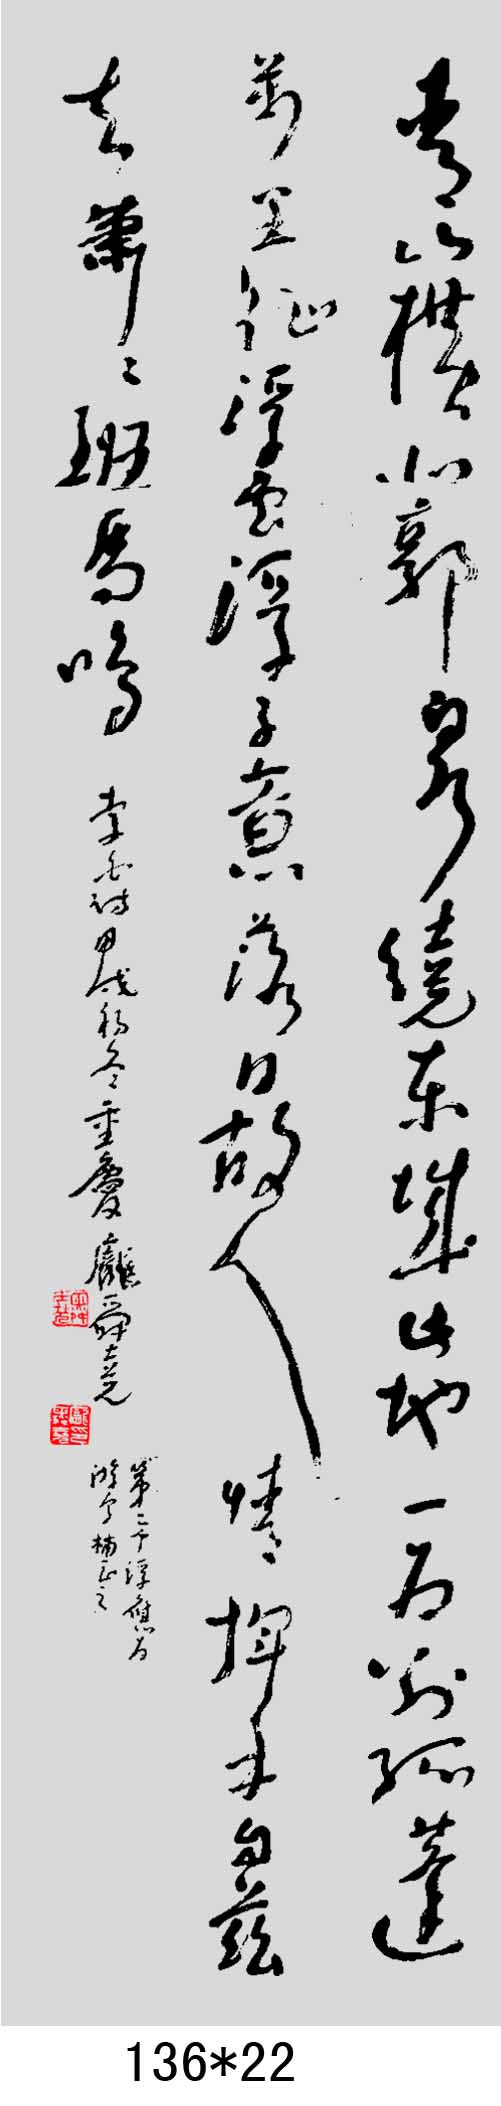 青山横北郭白水繞东城此地一为别孤蓬
万里征浮云浮子意落日故人情挥手自兹
去萧々班马鸣
李白诗甲戌初冬重慶龐舜尧
第二个浮應为
游字補正之
136*22